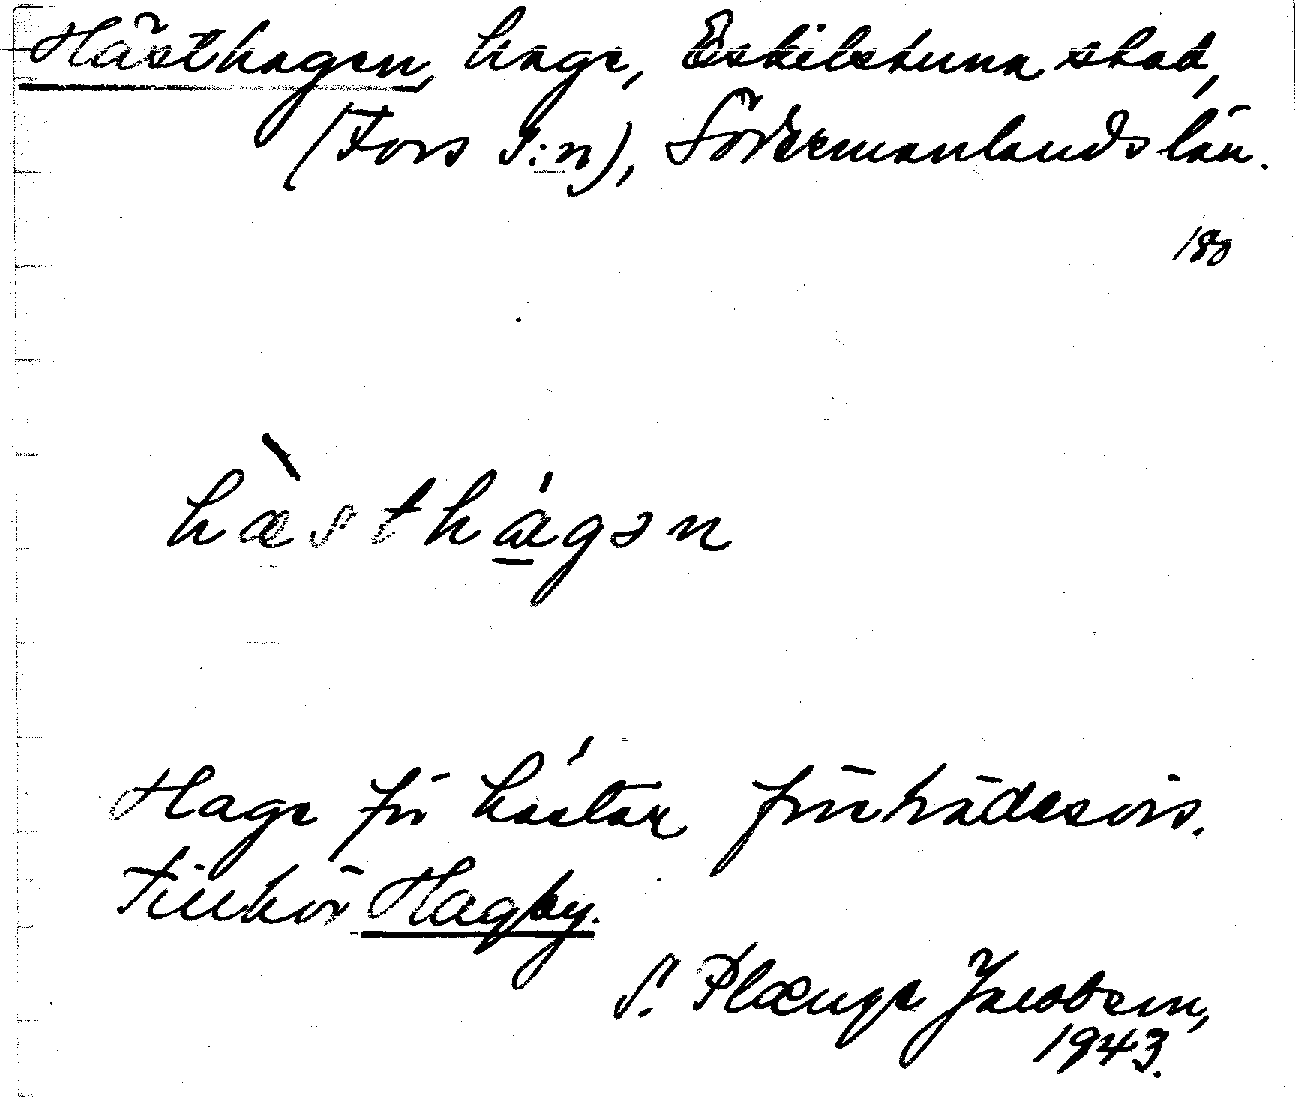 Hästhagen, hage, Eskilstuna stad,
(Fors s:n), Södermanlands län.
180
hæ̀sthágən
Hage för hästar företrädesvis.
Tillhör Hagby.
S. Plænge Jacobson,
1943.